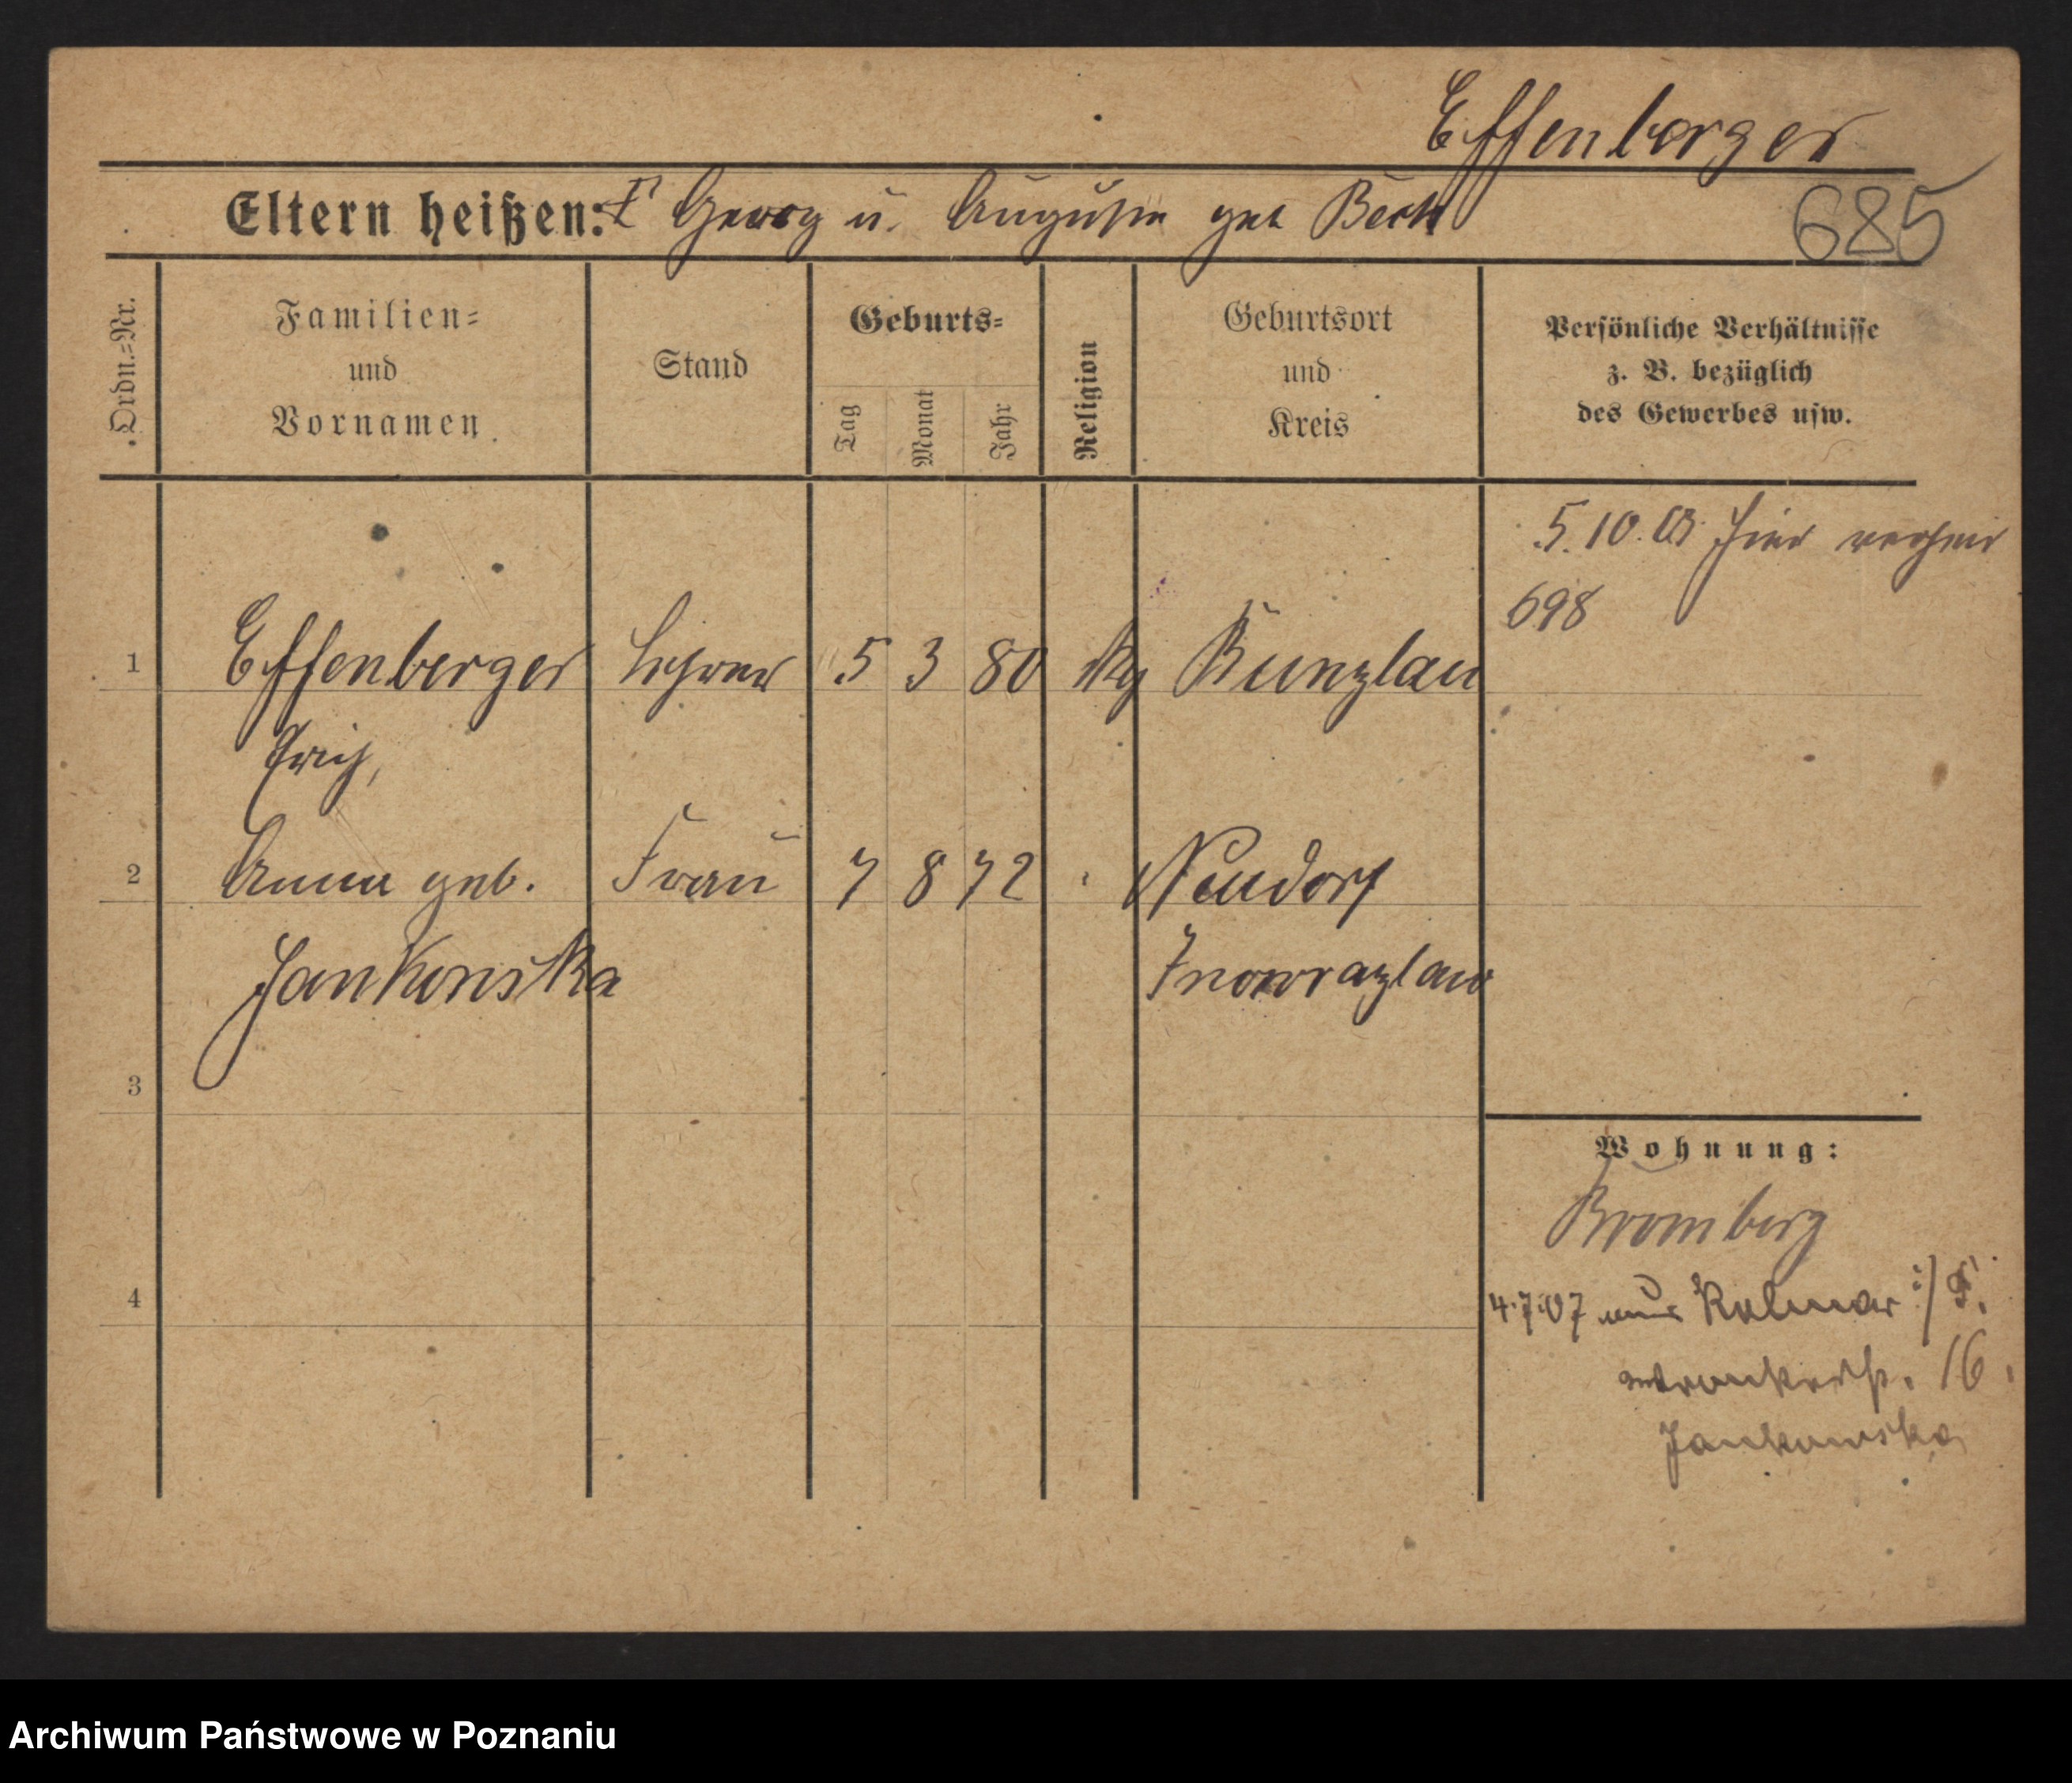 Effenberger
Eltern heißen: I Georg u. Auguste geb Beck
685
Ordn.=Nr.
Familien=
und
Vornamen
Stand
Geburts=
Tag
Monat
Jahr
Religion
Geburtsort
und
Kreis
Persönliche Verhältnisse
z. B. bezüglich
des Gewerbes usw.
5. 10. hier verheir
698
1 Effenberger Lehrer 5 3 80 Bunzlau
Erich,
2 Anna geb. Frau 7 8 72 Neudorf
Jankowska Inowrazlaw
3
Wohnung:
Bromberg
4 4.7.07 aus Kolmar i/P.
Wronkerstr. 16.
Jankowska
Archiwum Państwowe w Poznaniu